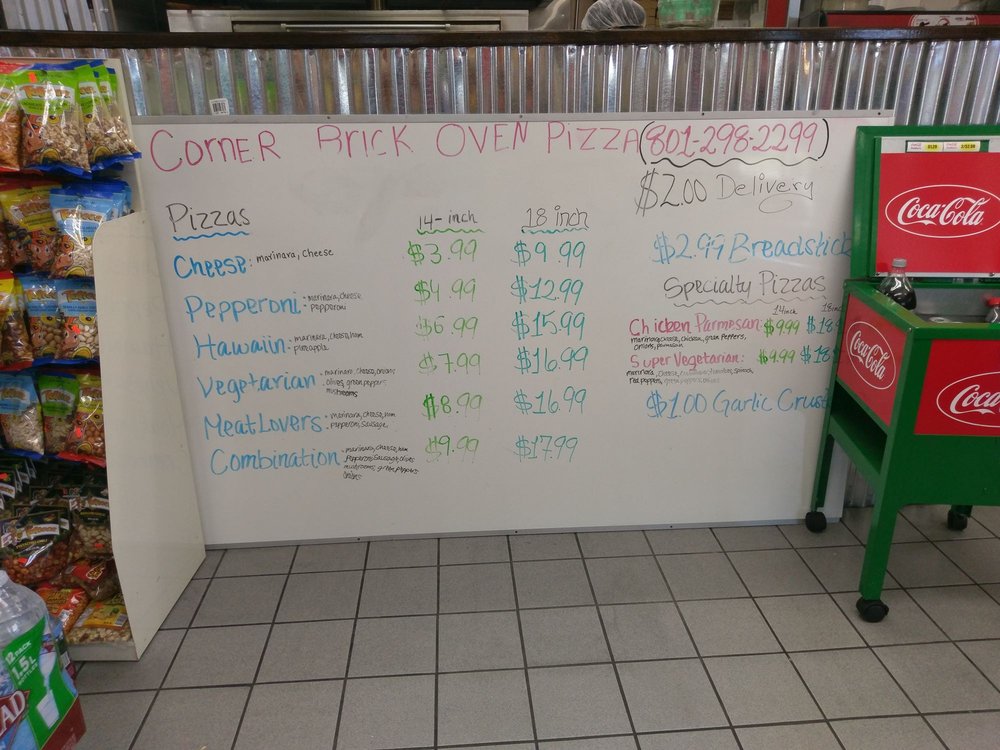 Corner Brick Oven Pizza (801-298-2299)
$2.00 Delivery
Pizzas 14-inch 18 inch
Cheese: marinara, cheese $3.99 $9.99
$2.99 Breadstick
Pepperoni: marinara, cheese $4.99 $12.99
pepperoni
Specialty Pizzas
14inch 18inch
Hawaiin: marinara, cheese, ham $6.99 $15.99
pineapple
Chicken Parmesan: $9.99 $18.
marinara, cheese, chicken, green peppers,
onions, parmesan
Vegetarian: marinara, cheese, onions $7.99 $16.99
olives, green pepper
mushrooms
Super Vegetarian: $9.99 $18
marinara, cheese, tomatoes, spinach,
red peppers, green peppers, onions
Meat Lovers: marinara, cheese, ham $8.99 $16.99
pepperoni, sausage
$1.00 Garlic Crust
Combination: marinara, cheese, ham $9.99 $17.99
pepperoni, sausage, olives
mushrooms, green peppers
onions
Coca-Cola
Coca-Cola
Coca-Cola
12 PACK
1.5L